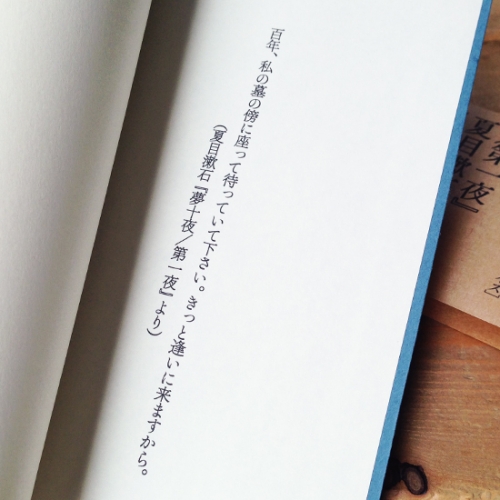 百年、私の墓の傍に座って待っていて下さい。きっと逢いに来ますから。
（夏目漱石『夢十夜／第一夜』より）
第一夜』
夏目漱石『